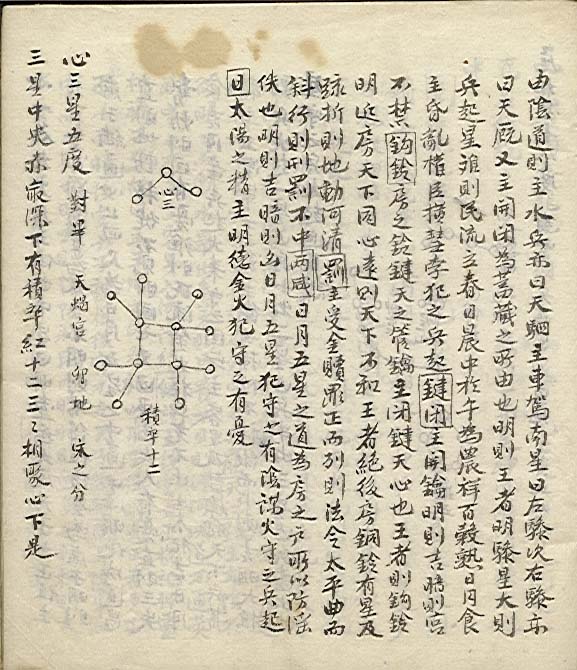 由陰道則主水兵亦曰天駟主車駕南星曰左驂次右驂亦
曰天厩又主開閉為蓄藏之所由也明則王者明驂星大則
兵起星離則民流立春日晨中於午為農祥百穀熟日月食
主昏亂權臣橫彗孛犯之兵起鍵閉主開鑰明則吉暗則宮
不禁鈎鈴房之鈴鍵天之管鑰主閉鍵天心也王者則鈎鈴
明近房天下同心遠則天下不和王者絕後房鈎鈴有星及
踈折則地動河清罰主受金贖罪正而列則法令太平曲而
斜行則刑罰不中兩咸日月五星之道為房之戶所以防淫
佚也明則吉暗則凶日月五星犯守之有陰謀火守之兵起
日太陽之精主明德金火犯守之有憂
心三
積卒十二
心三星五度 對畢 天蝎宮 卯地 宋之分
三星中央赤最深下有積卒紅十二三三相聚心下是